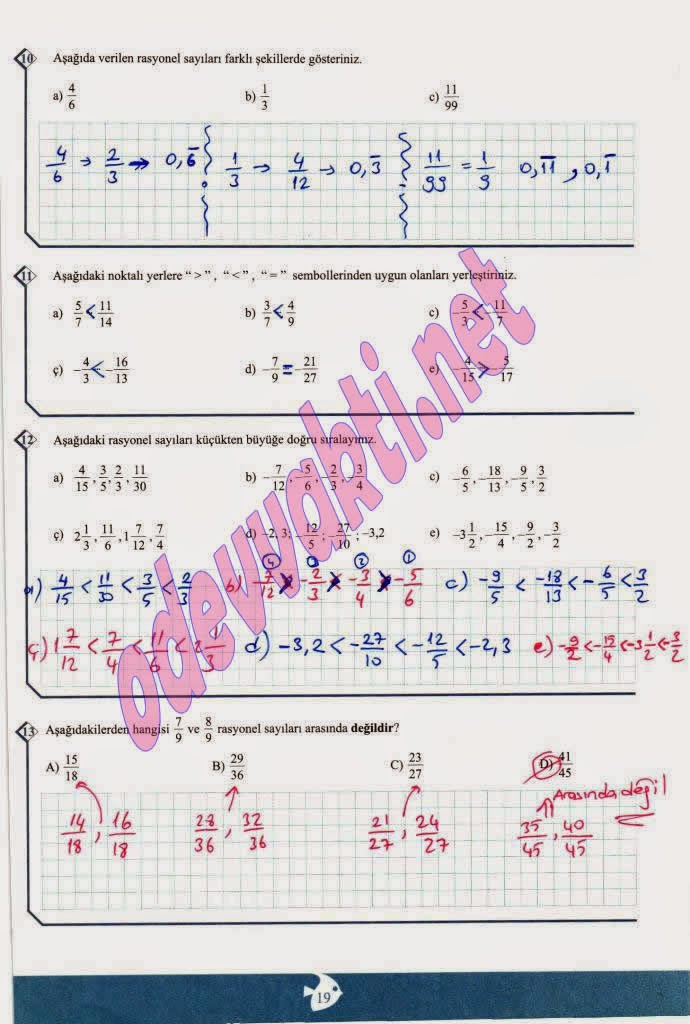 10 Aşağıda verilen rasyonel sayıları farklı şekillerde gösteriniz.
a) 4/6 b) 1/3 c) 11/99
4/6 → 2/3 → 0,6̅ 1/3 → 4/12 → 0,3̅ 11/99 = 1/9 0,1̅1̅ , 0,1̅
11 Aşağıdaki noktalı yerlere “ > ” , “ < ” , “ = ” sembollerinden uygun olanları yerleştiriniz.
a) 5/7 < 11/14 b) 3/7 < 4/9 c) -5/3 < -11/7
ç) -4/3 < -16/13 d) -7/9 = -21/27 e) -4/15 > -5/17
12 Aşağıdaki rasyonel sayıları küçükten büyüğe doğru sıralayınız.
a) 4/15 , 3/5 , 2/3 , 11/30 b) -7/12 , -5/6 , -2/3 , -3/4 c) -6/5 , -18/13 , -9/5 , 3/2
ç) 2 1/3 , 11/6 , 1 7/12 , 7/4 d) -2, 3; -12/5 ; -27/10 ; -3,2 e) -3 1/2 , -15/4 , -9/2 , -3/2
4 3 2 1
a) 4/15 < 11/30 < 3/5 < 2/3 b) -7/12 -2/3 -3/4 -5/6 c) -9/5 < -18/13 < -6/5 < 3/2
ç) 1 7/12 < 7/4 < 11/6 < 2 1/3 d) -3,2 < -27/10 < -12/5 < -2,3 e) -9/2 < -15/4 < -3 1/2 < -3/2
13 Aşağıdakilerden hangisi 7/9 ve 8/9 rasyonel sayıları arasında değildir?
A) 15/18 B) 29/36 C) 23/27 D) 41/45
Arasında değil
14/18 , 16/18 28/36 , 32/36 21/27 , 24/27 35/45 , 40/45
19
odevvakti.net